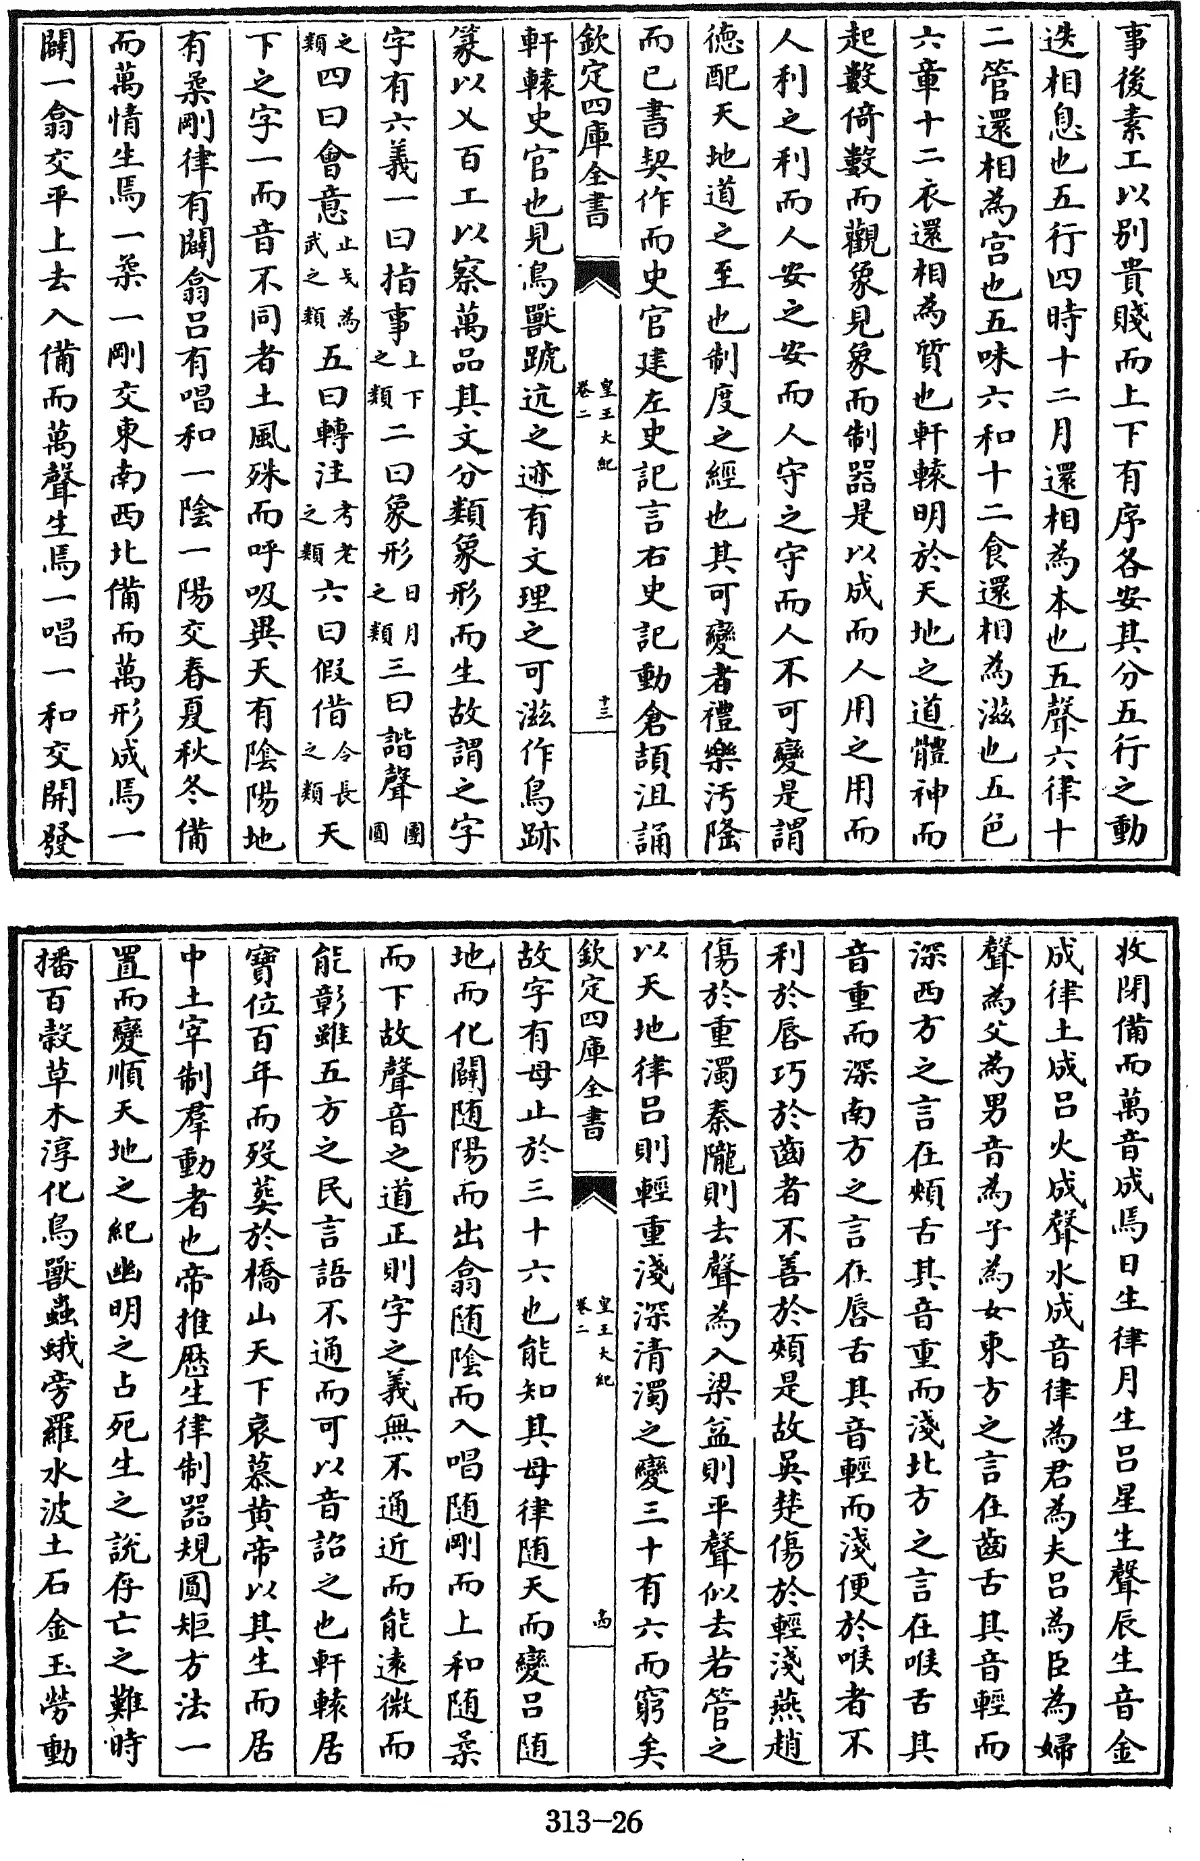 事後素工以別貴賤而上下有序各安其分五行之動
迭相息也五行四時十二月還相為本也五聲六律十
二管還相為宫也五味六和十二食還相為滋也五色
六章十二衣還相為質也軒轅明於天地之道體神而
起數倚數而觀象見象而制器是以成而人用之用而
人利之利而人安之安而人守之守而人不可變是謂
徳配天地道之至也制度之經也其可變者禮樂汚隆
而已書契作而史官建左史記言右史記動倉頡沮誦
欽定四庫全書
皇王大紀
卷二
十三
軒轅史官也見鳥獸蹏迒之迹有文理之可滋作鳥跡
篆以乂百工以察萬品其文分類象形而生故謂之字
字有六義一曰指事上下之類二曰象形日月之類三曰諧聲團圓
之類四曰會意止戈為武之類五曰轉注考老之類六曰假借令長之類天
下之字一而音不同者土風殊而呼吸異天有陰陽地
有柔剛律有闢翕吕有唱和一陰一陽交春夏秋冬備
而萬情生焉一柔一剛交東南西北備而萬形成焉一
闢一翕交平上去入備而萬聲生焉一唱一和交開發
收閉備而萬音成焉日生律月生吕星生聲辰生音金
成律土成吕火成聲水成音律為君為夫吕為臣為婦
聲為父為男音為子為女東方之言在齒舌其音輕而
深西方之言在頰舌其音重而淺北方之言在喉舌其
音重而深南方之言在唇舌其音輕而淺便於喉者不
利於唇巧於齒者不善於頰是故吳楚傷於輕淺燕趙
傷於重濁秦隴則去聲為入梁益則平聲似去若管之
以天地律吕則輕重淺深清濁之變三十有六而窮矣
欽定四庫全書
皇王大紀
卷二
十四
故字有母止於三十六也能知其母律随天而變吕随
地而化闢随陽而出翕随陰而入唱随剛而上和随柔
而下故聲音之道正則字之義無不通近而能逺微而
能彰雖五方之民言語不通而可以音詔之也軒轅居
寳位百年而歿葬於橋山天下哀慕黄帝以其生而居
中土宰制羣動者也帝推厯生律制器規圓矩方法一
置而變順天地之紀幽明之占死生之說存亡之難時
播百穀草木淳化鳥獸蟲蛾旁羅水波土石金玉勞動
313-26